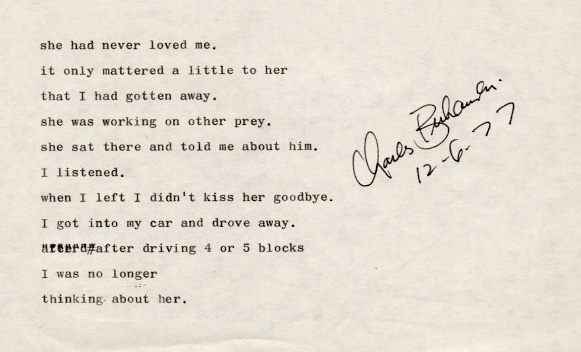 she had never loved me.
it only mattered a little to her
that I had gotten away.
she was working on other prey.
she sat there and told me about him.
I listened.
when I left I didn't kiss her goodbye.
I got into my car and drove away.
after driving 4 or 5 blocks
I was no longer
thinking about her.
Charles Bukowski
12-6-77